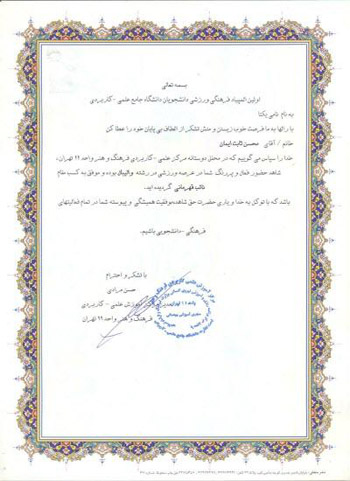 بسمه تعالی
اولین المپیاد فرهنگی ورزشی دانشجویان دانشگاه جامع علمی -کاربردی
به نام نامی یکتا
بارالها به ما فرصت خوب زیستن و منش تشکر از الطاف بی پایان خود را عطا کن
خانم / آقای محسن ثابت ایمان
خدا را سپاس می گوییم که در محفل دوستانه مرکز علمی -کاربردی فرهنگ و هنر واحد ۲۲ تهران،
شاهد حضور فعال و پررنگ شما در عرصه ورزشی در رشته والیبال بوده و موفق به کسب مقام
نائب قهرمانی گردیده اید.
باشد که با توکل به خدا و یاری حضرت حق شاهد موفقیت همیشگی و پیوسته شما در تمام فعالیتهای
فرهنگی -دانشجویی باشیم.
با تشکر و احترام
حسن مرادی
مدیر مرکز آموزش علمی - کاربردی
فرهنگ و هنر واحد ۲۲ تهران